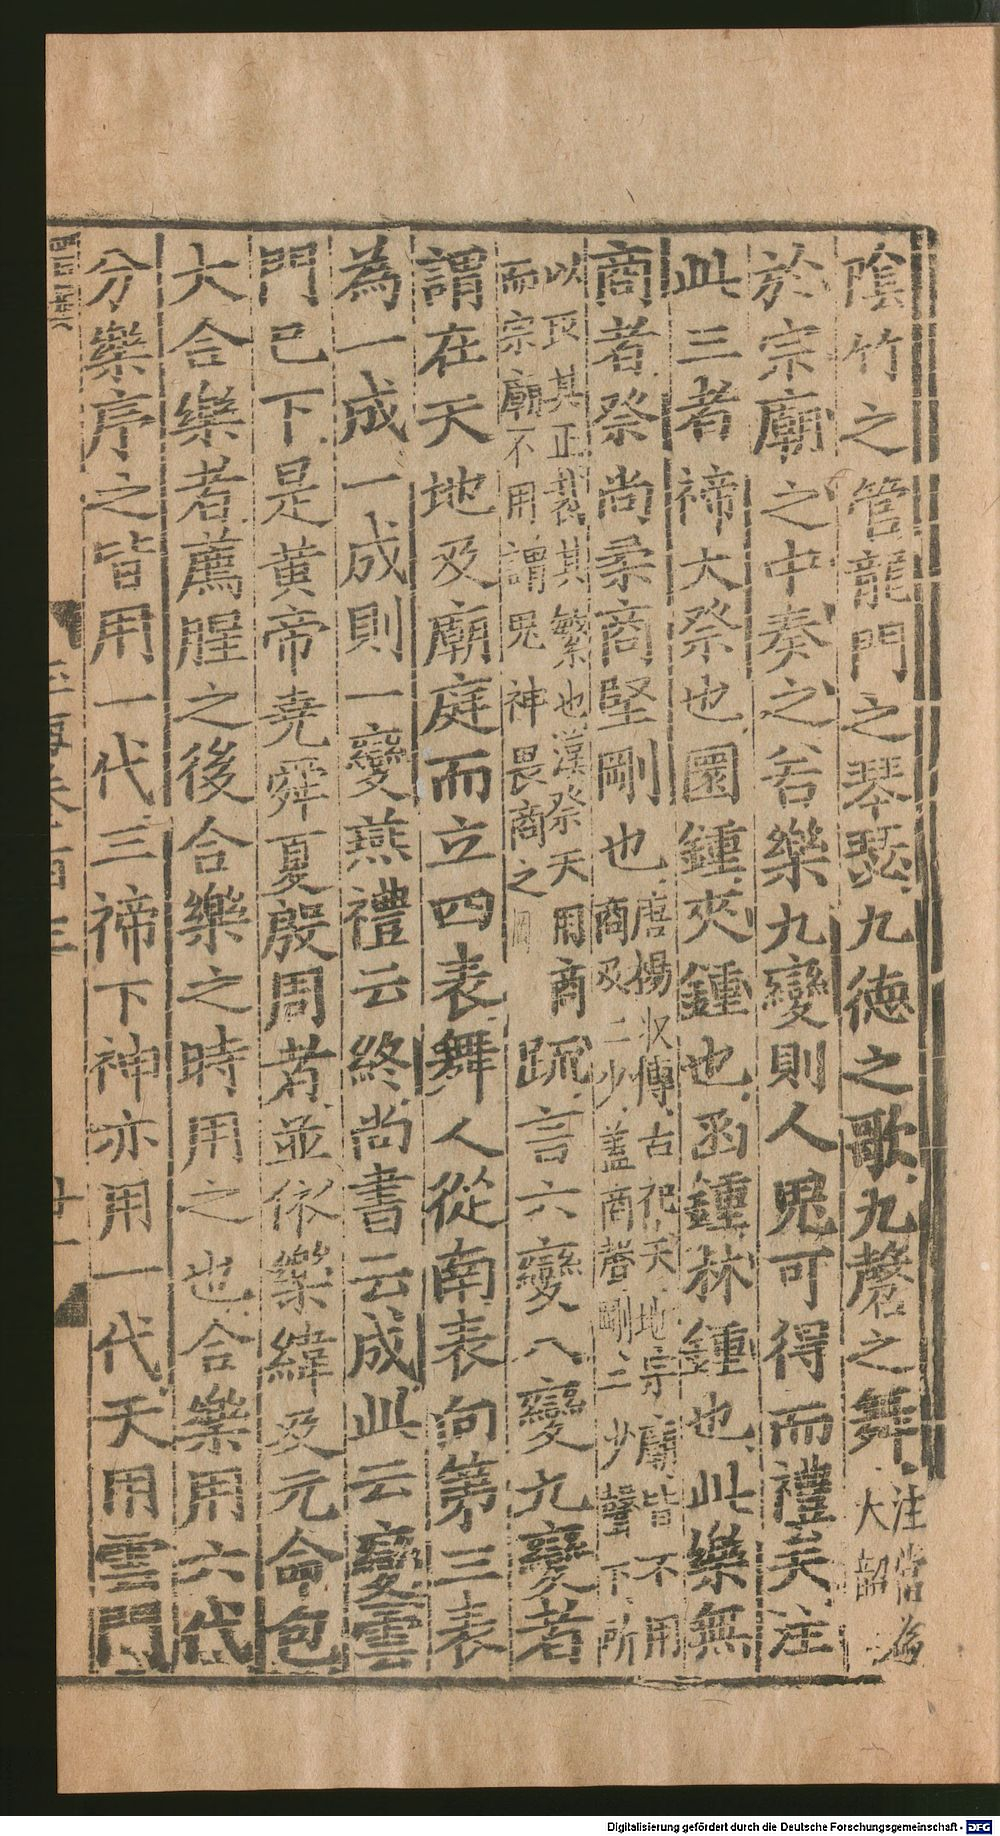 陰竹之管龍門之琴瑟九德之歌九磬之舞注當為大韶
於宗廟之中奏之若樂九變則人鬼可得而禮矣注
此三者禘大祭也圜鍾夾鍾也函鍾林鍾也此樂無
商者祭尚柔商堅剛也唐楊收傳古祀天地宗廟皆不用商及二少蓋商聲剛二少聲下所
以取其正裁其繁也漢祭天用商而宗廟不用謂鬼神畏商之 疏言六變八變九變者
謂在天地及廟庭而立四表舞人從南表向第三表
為一成一成則一變燕禮云終尚書云成此云變雲
門已下是黃帝堯舜夏殷周者並依樂緯及元命包
大合樂者薦腥之後合樂之時用之也合樂用六代
分樂序之皆用一代三禘下神亦用一代天用雲門
Digitalisierung gefördert durch die Deutsche Forschungsgemeinschaft - DFG